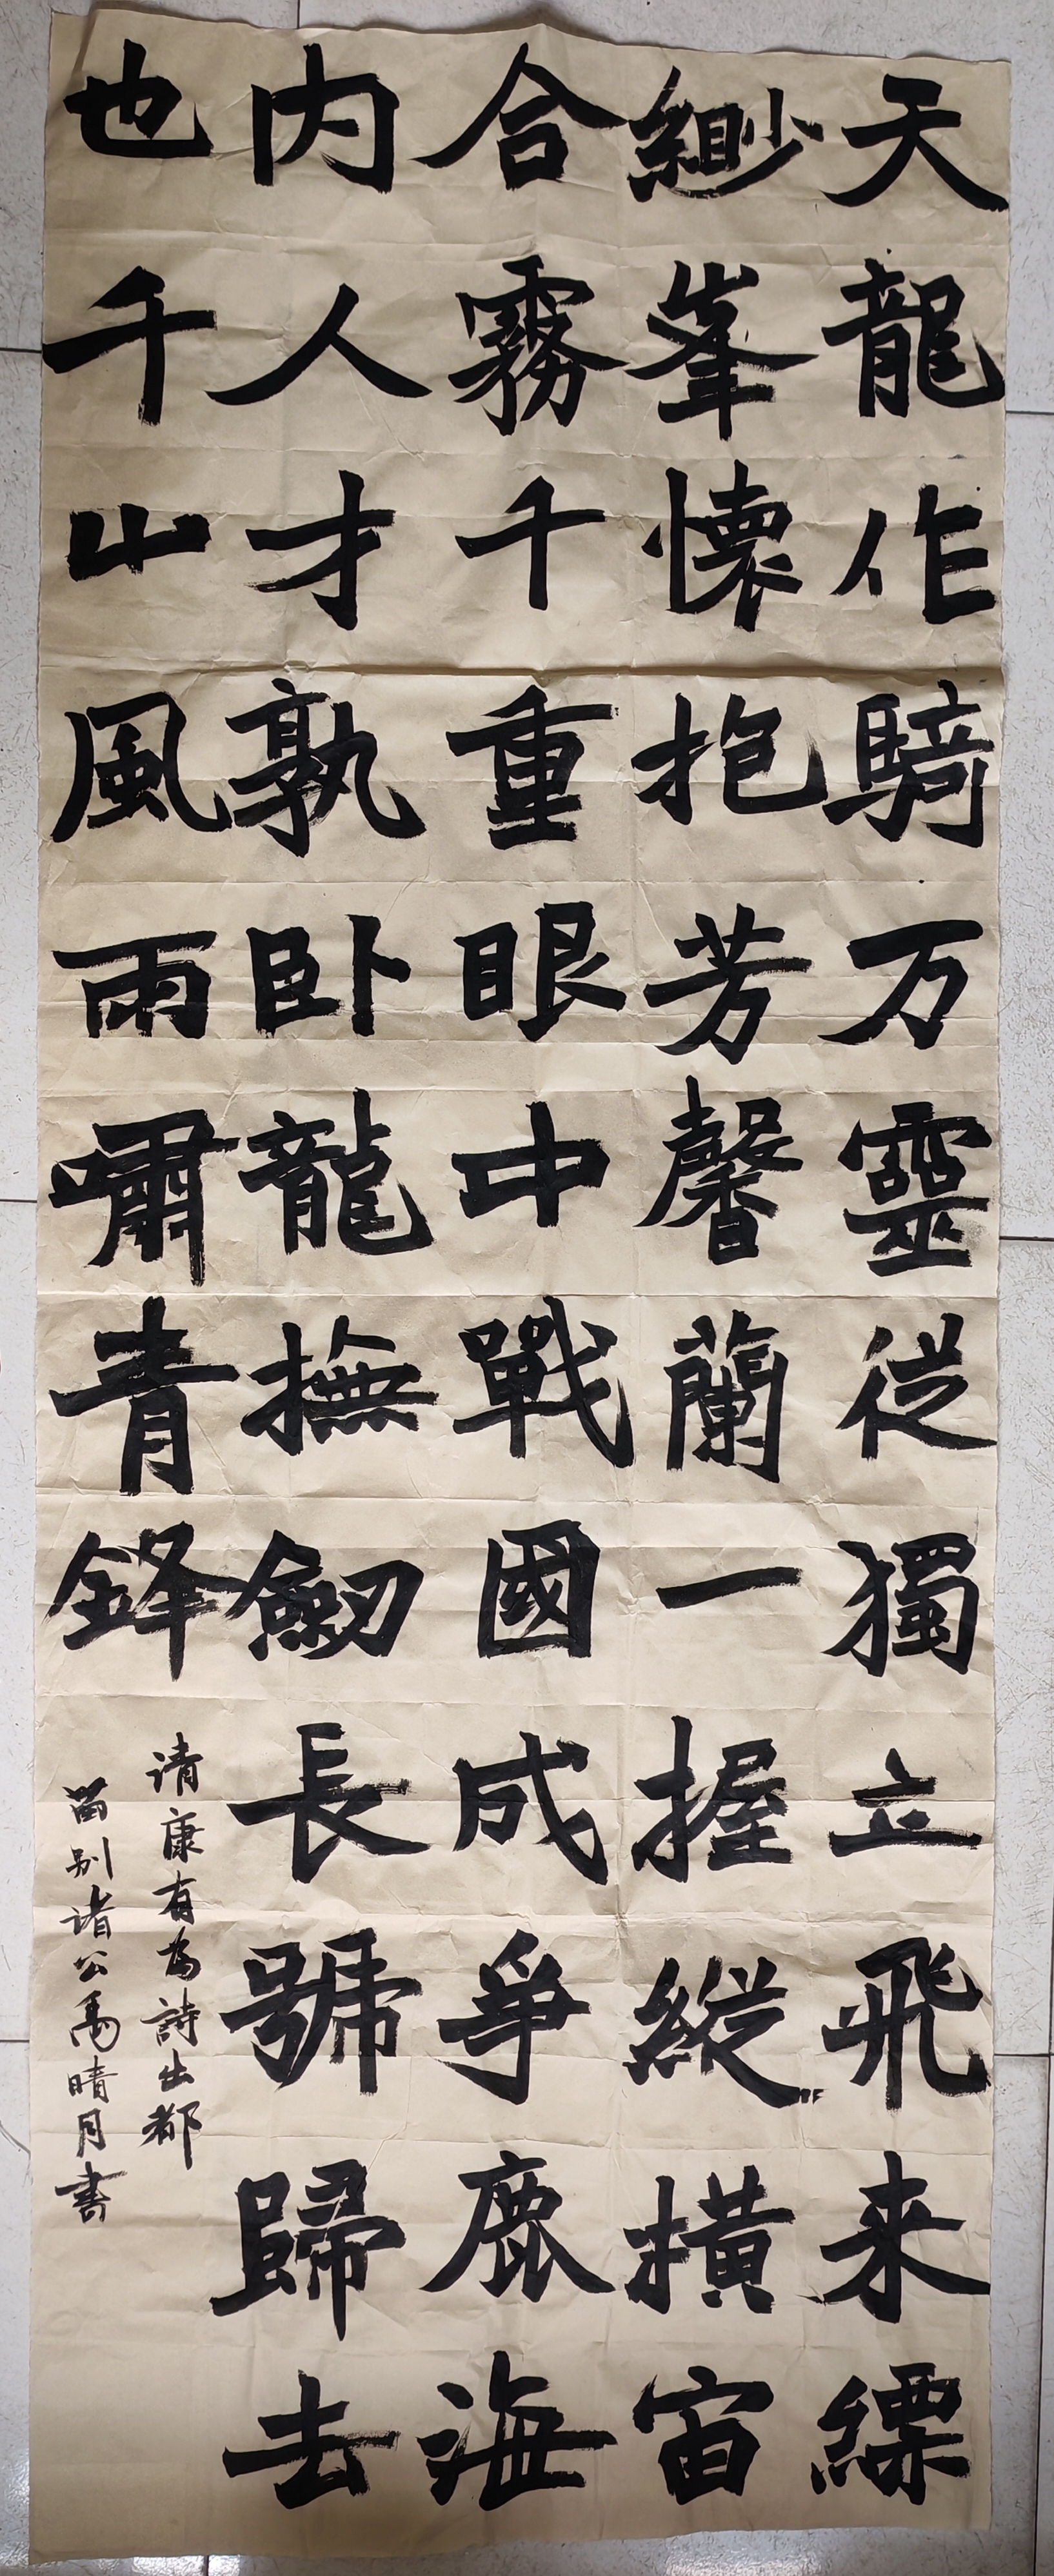 天龍作騎万靈從獨立飛来縹
緲峯懷抱芳馨蘭一握縱橫宙
合霧千重眼中戰國成爭鹿海
内人才孰卧龍撫劒長號歸去
也千山風雨嘯青鋒
请康有為詩出都
留别诸公禹晴月書